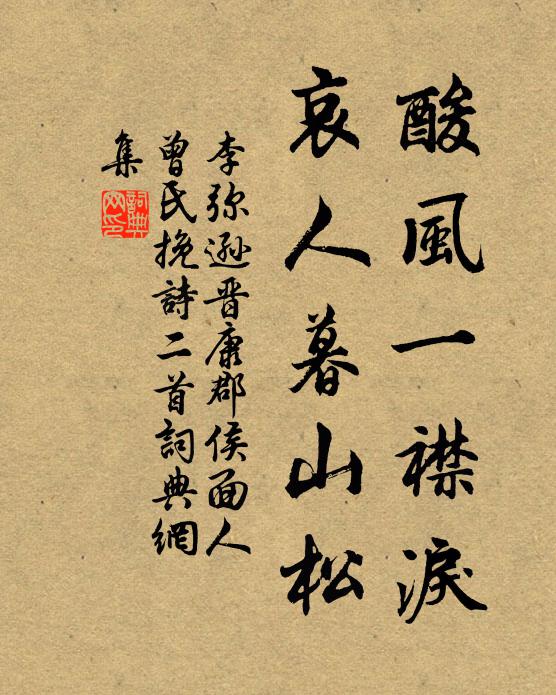 酸風一襟淚
哀人暮山松
李弥遜晋康郡侯面人
曾氏挽詩二首詞典網
集
詞典网印